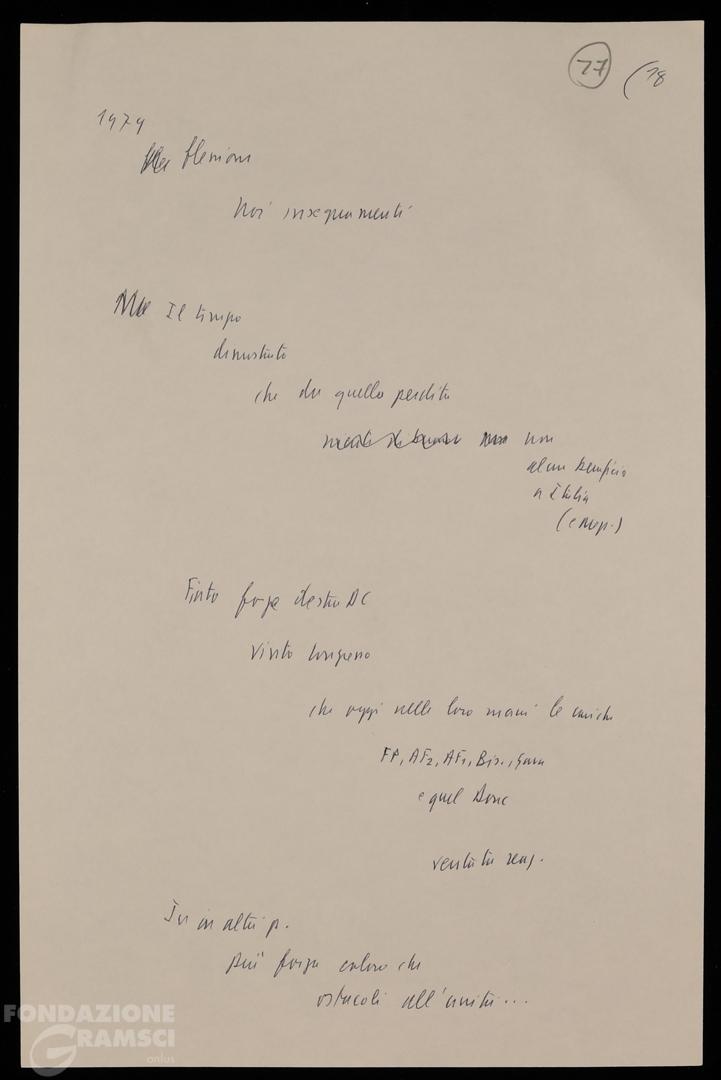 17 (18
1979
elezioni
Noi insegnamenti
Il tempo
dimostrato
che da quella perdita
non
alcun beneficio
a Italia
(e Mep.)
Finto forza destra DC
Vinto congresso
che oggi nelle loro mani le cariche
FP, AF2, AF1, Bis., Gava
e quel Donc
ventata reaz.
In in altri p.
più forza coloro che
ostacoli all'unità...
FONDAZIONE
GRAMSCI
onlus